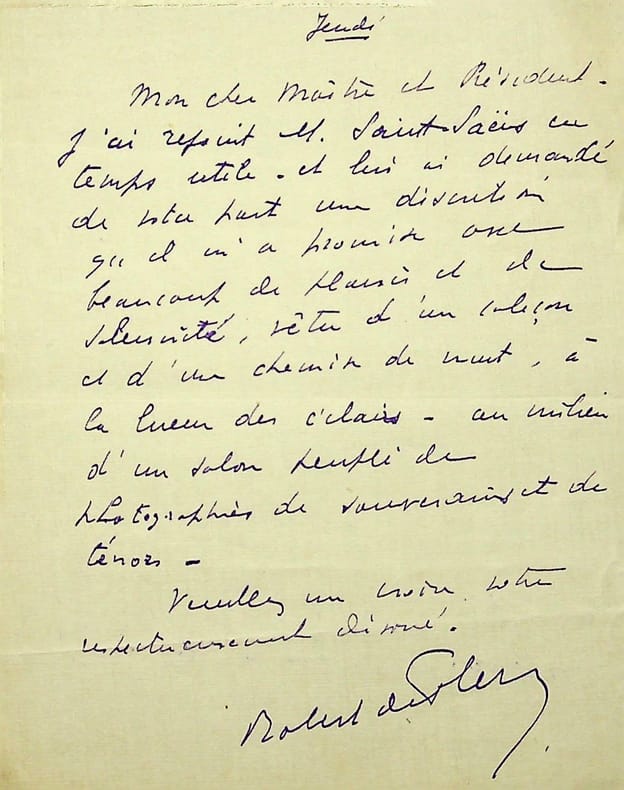 Jeudi
Mon cher Maître et Président -
J'ai rejoint M. Saint-Saëns en
temps utile - et lui ai demandé
de votre part une discrétion
qu'il m'a promise avec
beaucoup de plaisir et de
solennité, vêtu d'un caleçon
et d'une chemise de nuit, à
la lueur des éclairs - au milieu
d'un salon peuplé de
photographies de souverains et de
ténors -
Veuillez me croire votre
respectueusement dévoué.
Robert de Flers